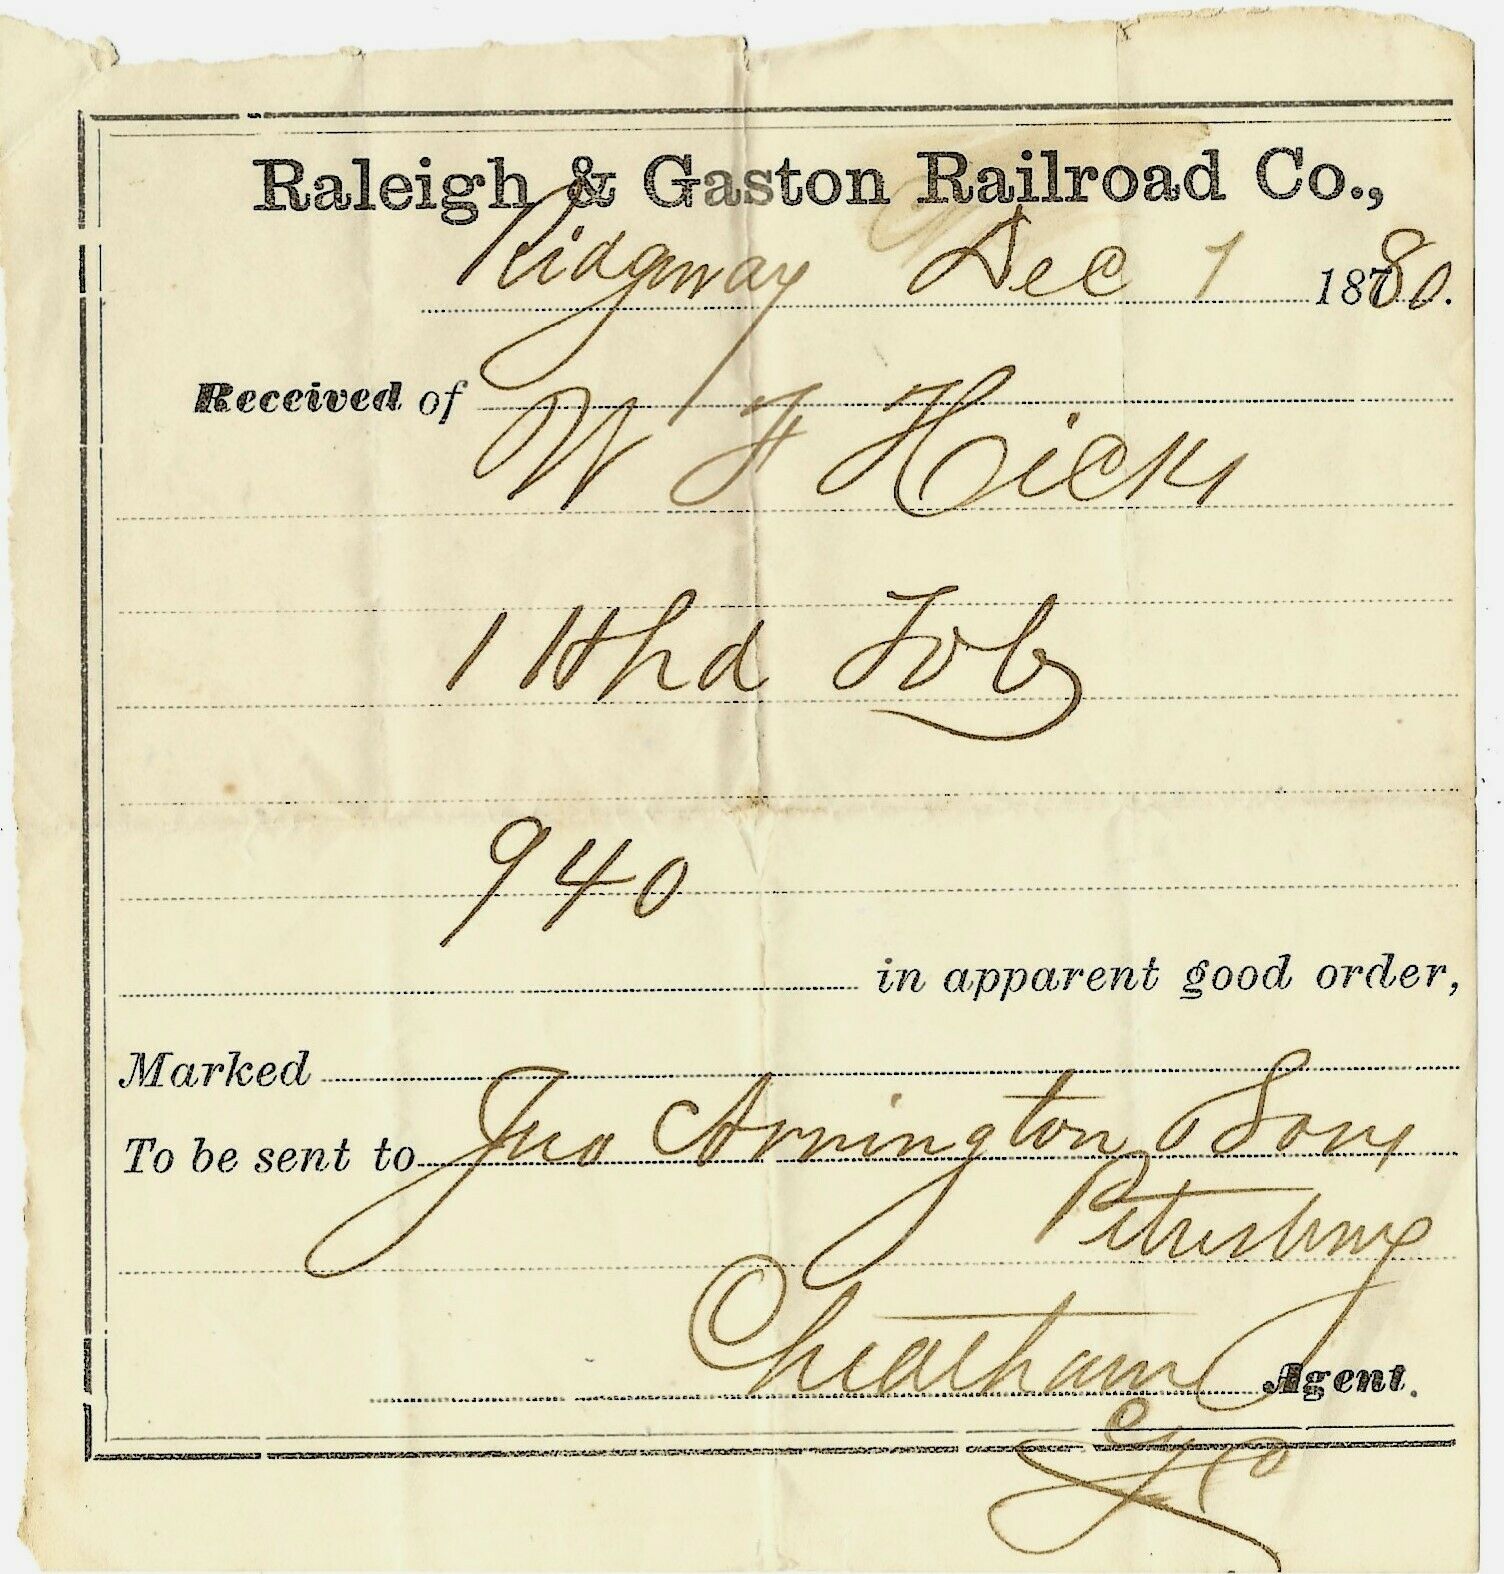 Raleigh & Gaston Railroad Co.,
Ridgway Dec 1 1880.
Received of
W F Hicks
1 Hhd Tob
940
in apparent good order,
Marked
To be sent to Jno Arrington Sons
Petersburg
Cheatham Agent.